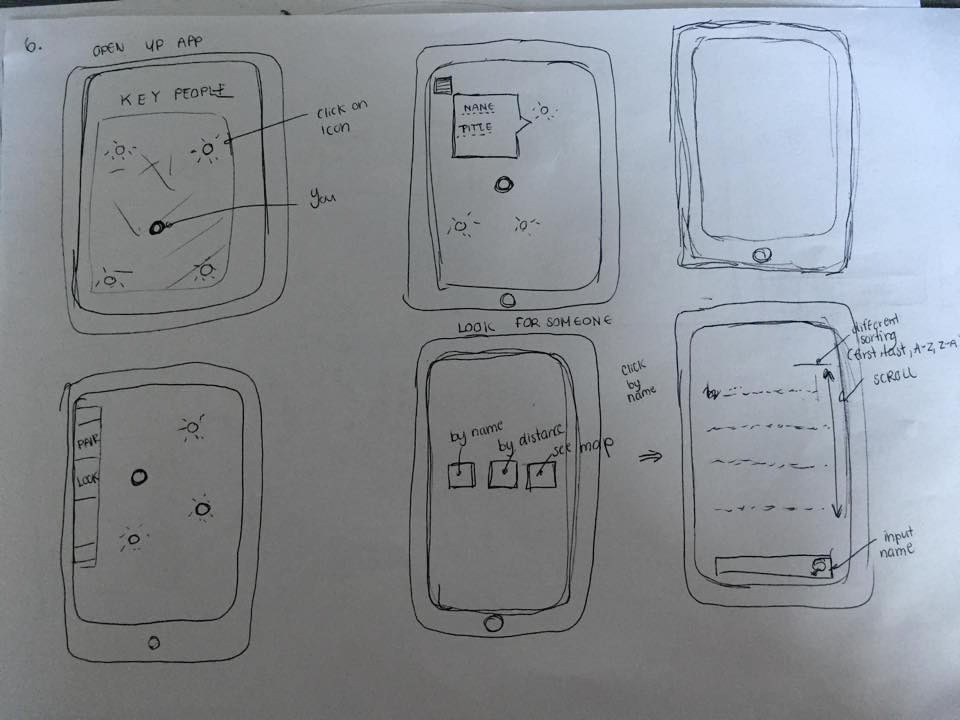 6.
OPEN UP APP
KEY PEOPLE
click on
icon
You
NAME
TITLE
PAIR
LOOK
LOOK FOR SOMEONE
by name
by distance
see map
click
by
name
⇒
different
sorting
(first, last, A-Z, Z-A)
SCROLL
input
name